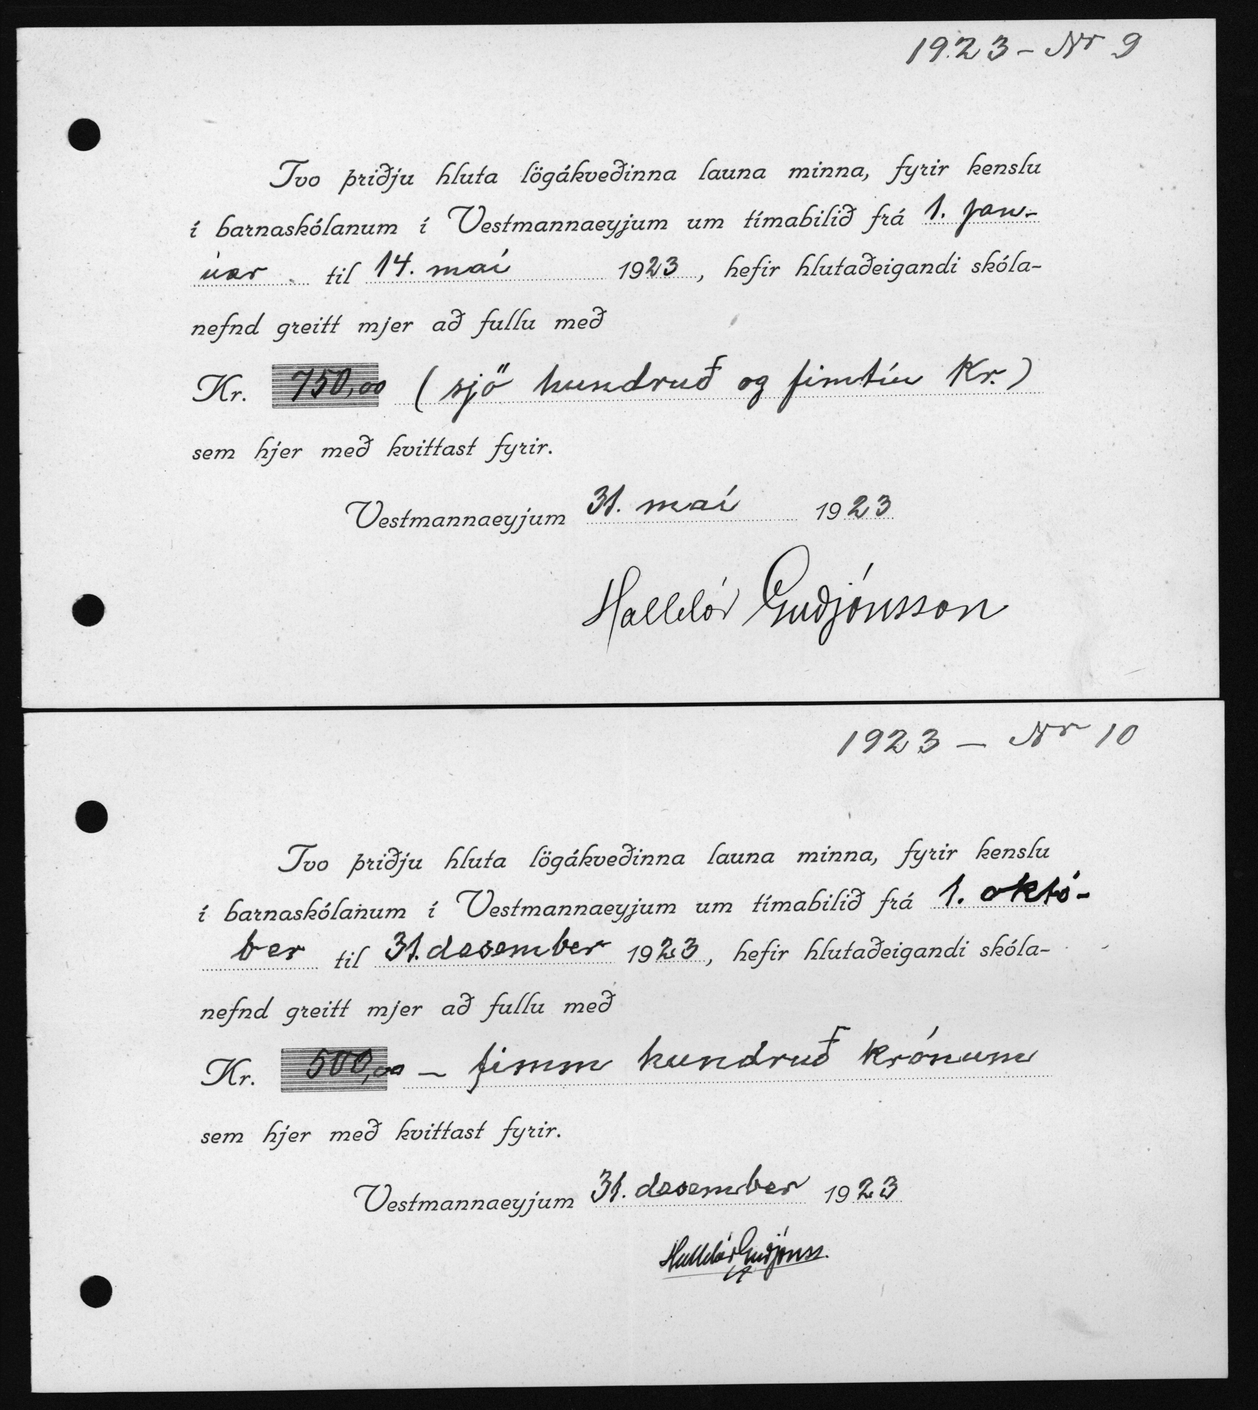 1923 - Nr 9
Tvo þriðju hluta lögákveðinna launa minna, fyrir kenslu
í barnaskólanum í Vestmannaeyjum um tímabilið frá 1. jan-
úar til 14. maí 1923, hefir hlutaðeigandi skóla-
nefnd greitt mjer að fullu með
Kr. 750,00 (sjö hundruð og fimtíu Kr.)
sem hjer með kvittast fyrir.
Vestmannaeyjum 31. maí 1923
Halldór Guðjónsson
1923 - Nr 10
Tvo þriðju hluta lögákveðinna launa minna, fyrir kenslu
í barnaskólanum í Vestmannaeyjum um tímabilið frá 1. októ-
ber til 31. desember 1923, hefir hlutaðeigandi skóla-
nefnd greitt mjer að fullu með
Kr. 500,00 - fimm hundruð krónum
sem hjer með kvittast fyrir.
Vestmannaeyjum 31. desember 1923
Halldór Guðjónss.